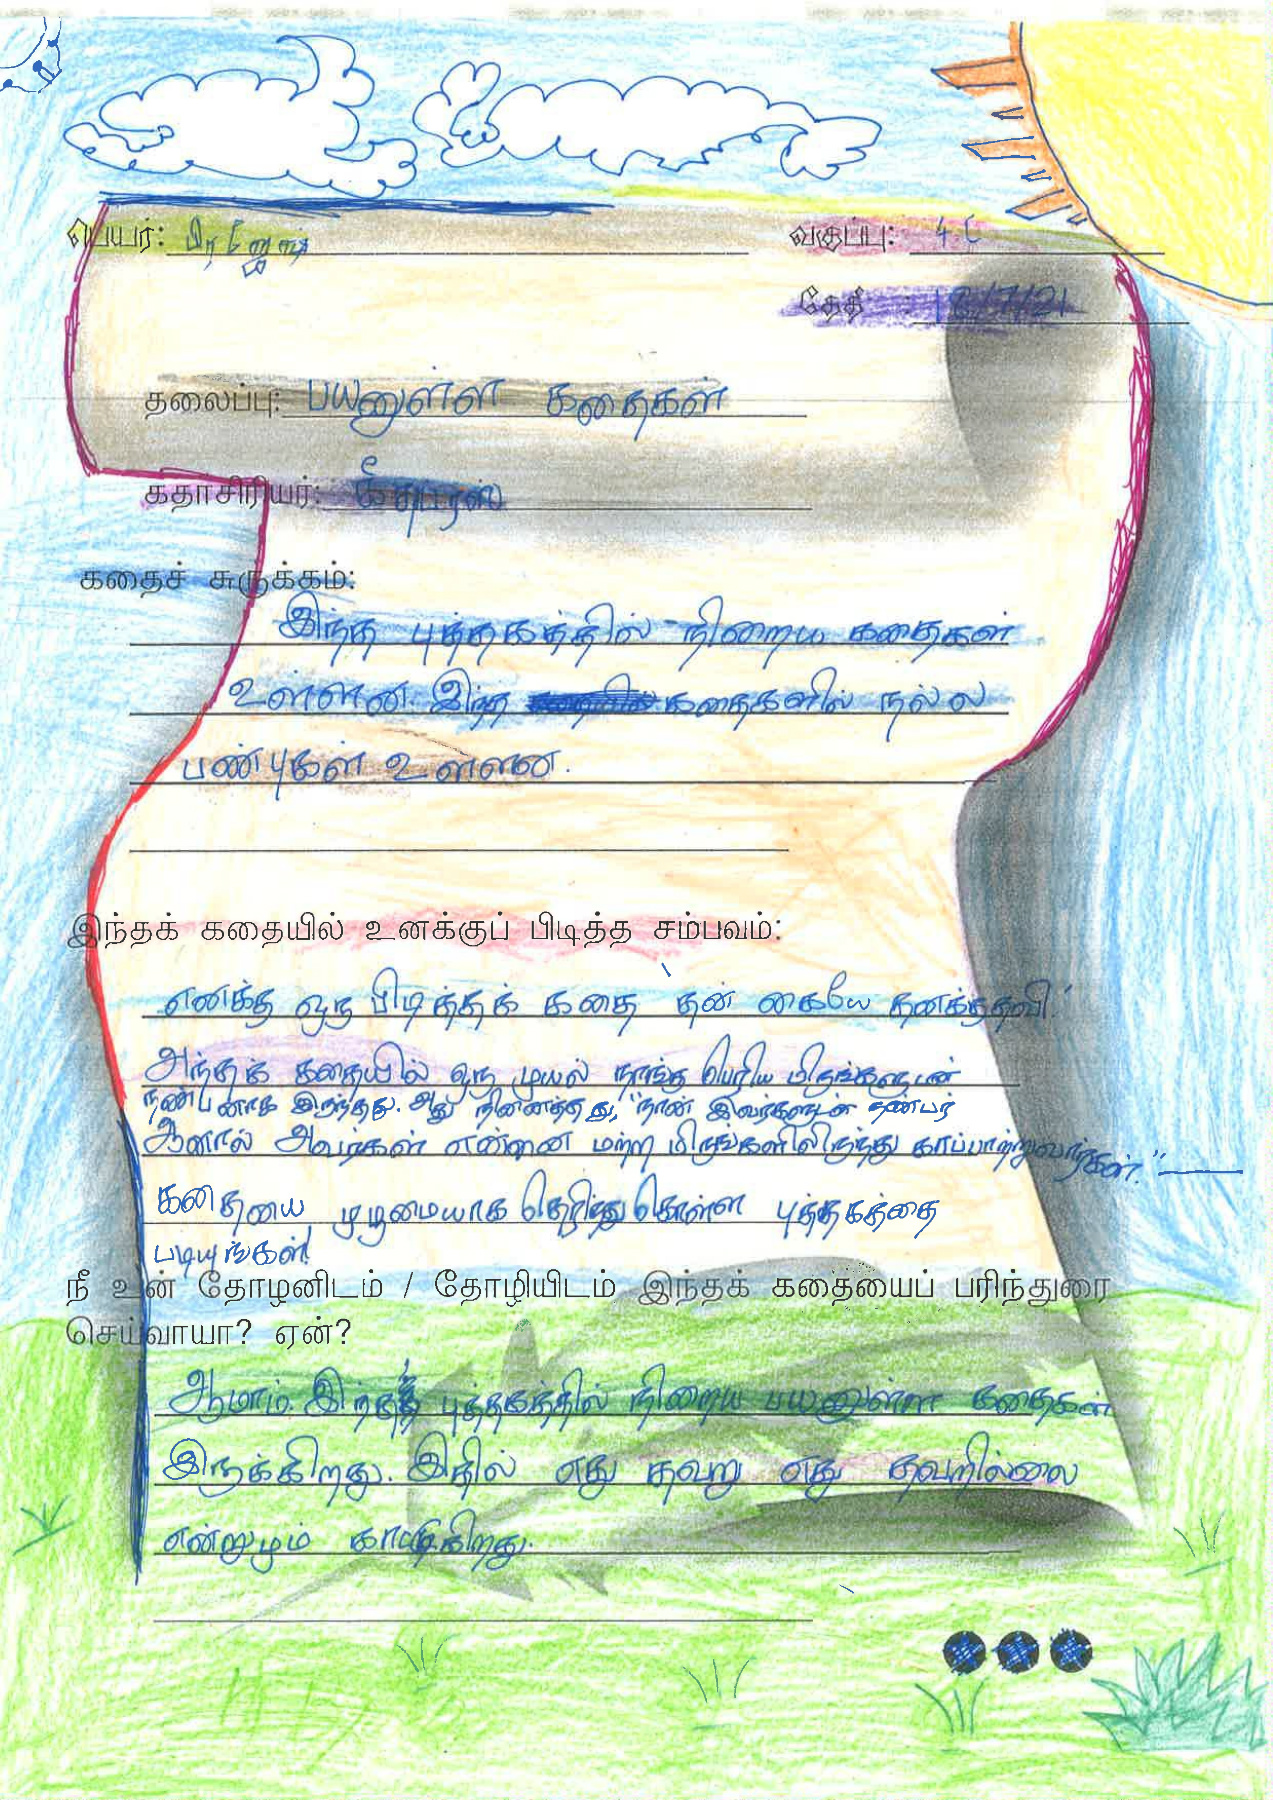 பெயர்:
வகுப்பு: 4C
தேதி : 18/7/21
தலைப்பு: பயனுள்ள கதைகள்
கதாசிரியர்:
கதைச் சுருக்கம்:
இந்த புத்தகத்தில் நிறைய கதைகள்
உள்ளன. இந்த கதைகளில் நல்ல
பண்புகள் உள்ளன.
இந்தக் கதையில் உனக்குப் பிடித்த சம்பவம்:
எனக்கு ஒரு பிடித்தக் கதை 'தன் கையே தனக்குதவி.'
அந்தக் கதையில் ஒரு முயல் நான்கு பெரிய மிருங்களுடன்
நண்பனாக இருந்தது. அது நினைத்தது, "நான் இவர்களுடன் நண்பர்
ஆனால் அவரகள் என்னை மற்ற மிருங்களிலிருந்து காப்பாற்றுவார்கள்."
கதையை முழுமையாக தெரிந்து கொள்ள புத்தகத்தை
படியுங்கள்!
நீ உன் தோழனிடம் / தோழியிடம் இந்தக் கதையைப் பரிந்துரை
செய்வாயா? ஏன்?
ஆமாம். இந்த புத்தகத்தில் நிறைய பயனுள்ளா கதைகள்
இருக்கிறது. இதில் எது தவறு எது தவறில்லை
என்றுழம் காட்டுகிறது.